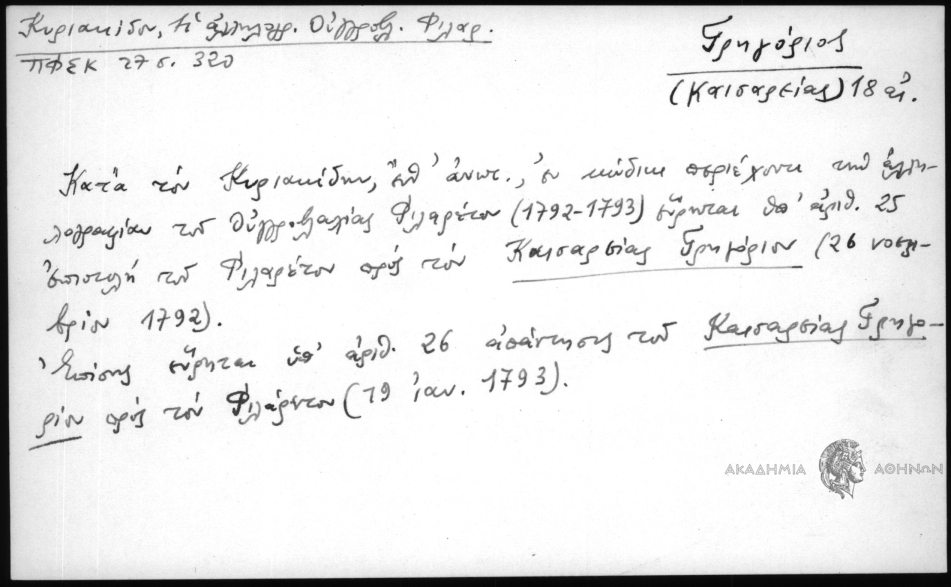 Κυριακίδου, Ἡ ἀλληλογρ. Οὑγγροβλ. Φιλαρ.
ΠΦΣΚ 27 σ. 320
Γρηγόριος
(Καισαρείας) 18 αἰ.
Κατὰ τὸν Κυριακίδην, ἔνθ' ἀνωτ., ἐν κώδικι περιέχοντι τὴν ἀλλη-
λογραφίαν τοῦ Οὑγγροβλαχίας Φιλαρέτου (1792-1793) εὕρηται ὑπ' ἀριθ. 25
ἐπιστολὴ τοῦ Φιλαρέτου πρὸς τὸν Καισαρείας Γρηγόριον (26 νοεμ-
βρίου 1792).
Ἐπίσης εὕρηται ὑπ' ἀριθ. 26 ἀπάντησις τοῦ Καισαρείας Γρηγο-
ρίου πρὸς τὸν Φιλάρετον (19 ἰαν. 1793).
ΑΚΑΔΗΜΙΑ ΑΘΗΝΩΝ